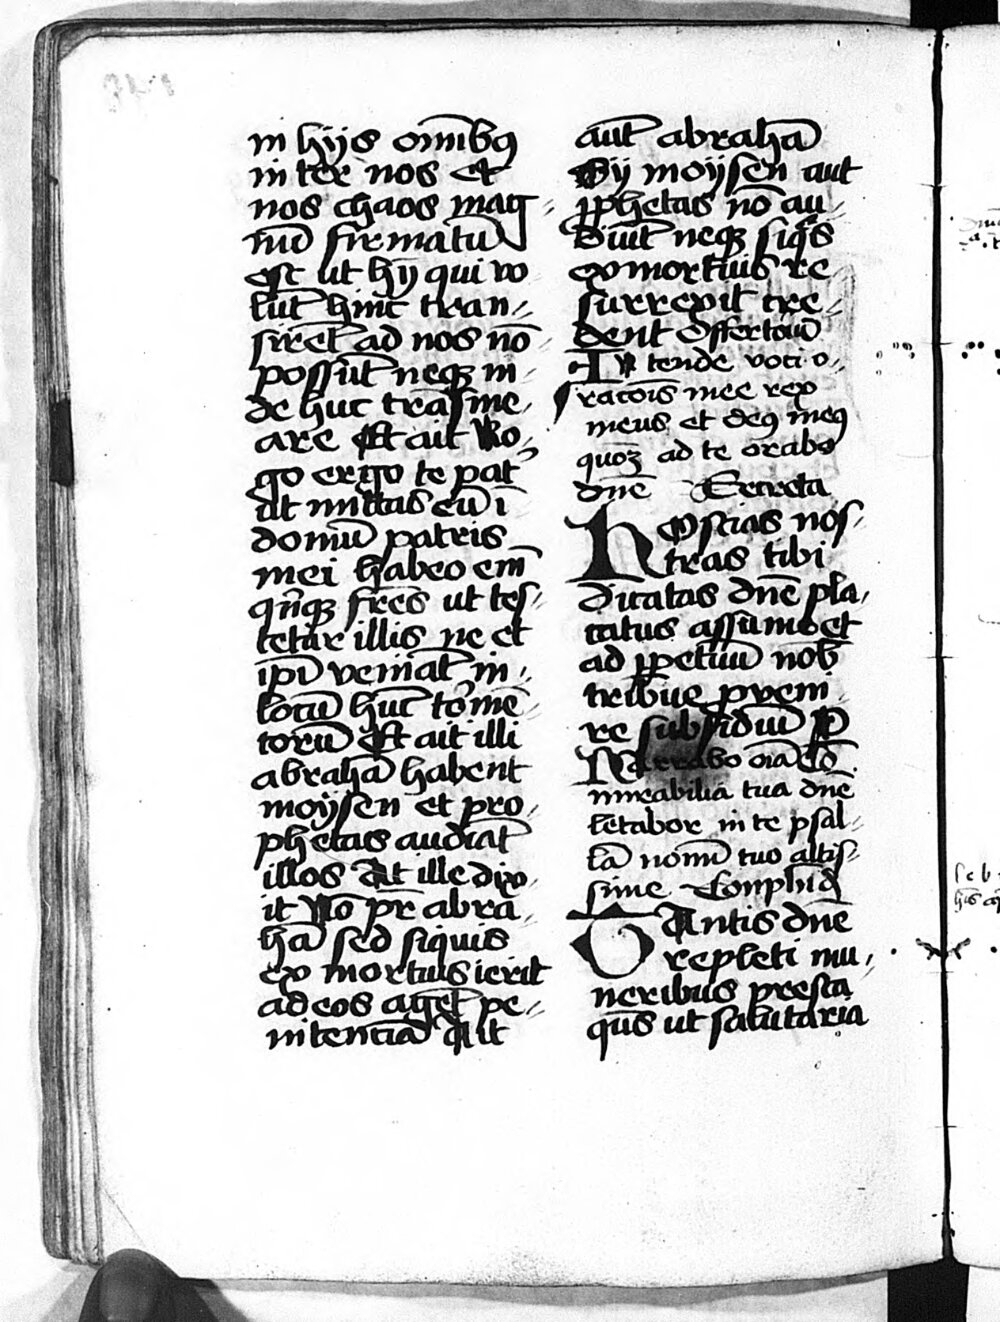 in hijs om̄ibꝯ
inter nos et
nos chaos mag
nū firmatū
est ut hij qui vo
lūt hinc tran⸗
siret̄ ad nos nō
possūt neqꝫ in
de huc trāsme
are Et ait Ro⸗
go ergo te pat̾
ut mittas eū ī
domū patris
mei habeo em̄
qn̄qꝫ fres̄ ut tes⸗
tetur illis ne et
ipī veniāt in
locū hūc tormē
torū Et ait illi
abrahā habent
moysen et pro
phetas audiāt
illos At ille dix
it Nō pr̄ abra
hā sed siquis
ex mortuis ierit
ad eos agēt pe⸗
nitenciā Ait
aut̄ abrahā
Si moysen aut
ꝓphetas nō au
diūt neqꝫ siqͥs
ex mortuis re
surrexit cre⸗
dent Offertoriū
In tende voci o⸗
racōis mee rex
meus et deꝯ meꝯ
quoꝫ ad te orabo
dn̄e Secreta
Hostias nos⸗
tras tibi
dicatas dn̄e pla
catus assume et
ad ꝑpetuū nob̄
tribue ꝓveni
re subsidiū
Narrabo oīa
mirabilia tua dn̄e
letabor in te psal⸗
lā nomī tuo altis⸗
sime Complend̄
Tantis dn̄e
repleti mu
neribus presta
qs̄ ut salutaria